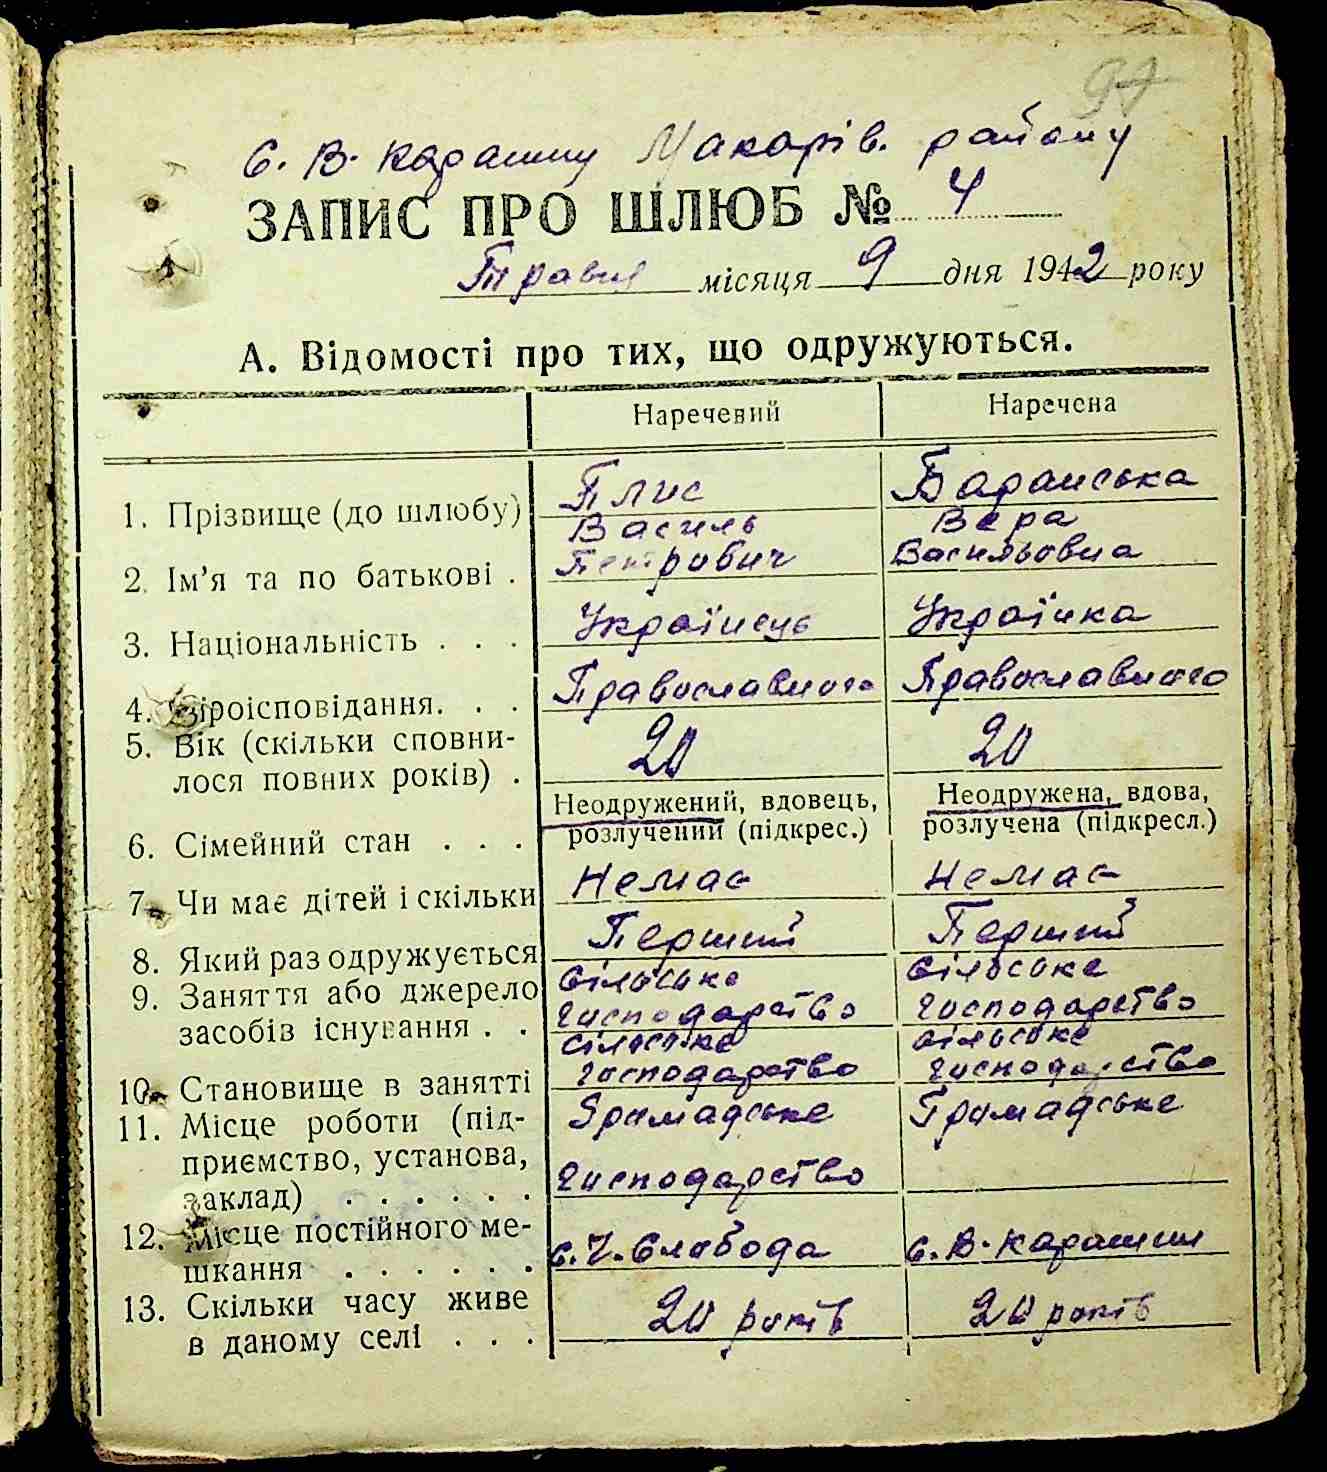 97
с. В. Карашин Макарів. району
ЗАПИС ПРО ШЛЮБ № 4
Травня місяця 9 дня 1942 року
А. Відомості про тих, що одружуються.
Наречевий Наречена
Плис Баранська
1. Прізвище (до шлюбу)
Василь Вера
Петрович Васильовна
2. Ім’я та по батькові .
Украінець Украінка
3. Національність . . .
Православного Православного
4. Віроісповідання. . .
5. Вік (скільки сповни-
20 20
лося повних років) .
Неодружений, вдовець, Неодружена, вдова,
розлучений (підкрес.) розлучена (підкресл.)
6. Сімейний стан . . .
Немає Немає
7. Чи має дітей і скільки
Перший Перший
8. Який раз одружується
сільське сільське
9. Заняття або джерело
господарство господарство
засобів існування . .
сільське сільське
господарство господарство
10. Становище в занятті
Громадське Громадське
11. Місце роботи (під-
приємство, установа,
господарство
заклад) . . . . . .
12. Місце постійного ме-
с. Ч. Слобода с. В. Карашин
шкання . . . . . .
13. Скільки часу живе
20 років 20 років
в даному селі . . .